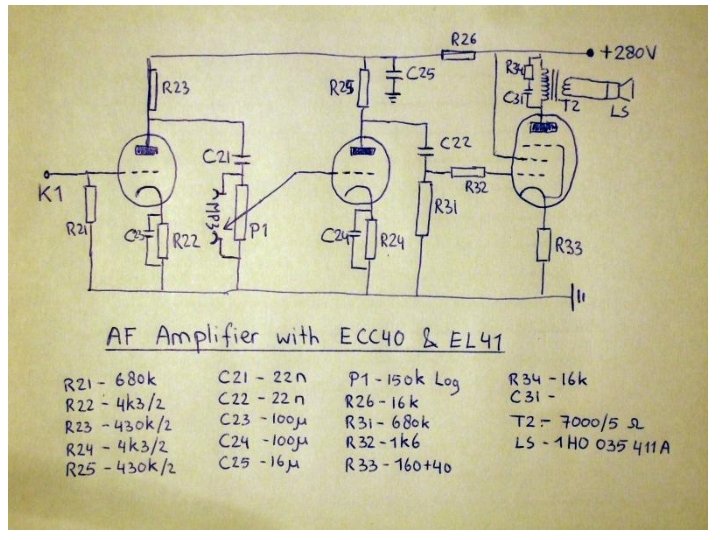 R26
+280V
R34
C25
R23
R25
C31
T2
LS
C21
C22
K1
R32
MP3
P1
R31
R21
C23
R22
C24
R24
R33
AF Amplifier with ECC40 & EL41
R21 - 680k
R22 - 4k3/2
R23 - 430k/2
R24 - 4k3/2
R25 - 430k/2
C21 - 22n
C22 - 22n
C23 - 100µ
C24 - 100µ
C25 - 16µ
P1 - 150k Log
R26 - 16k
R31 - 680k
R32 - 1k6
R33 - 160+40
R34 - 16k
C31 -
T2 - 7000/5 Ω
LS - 1HO 035 411A